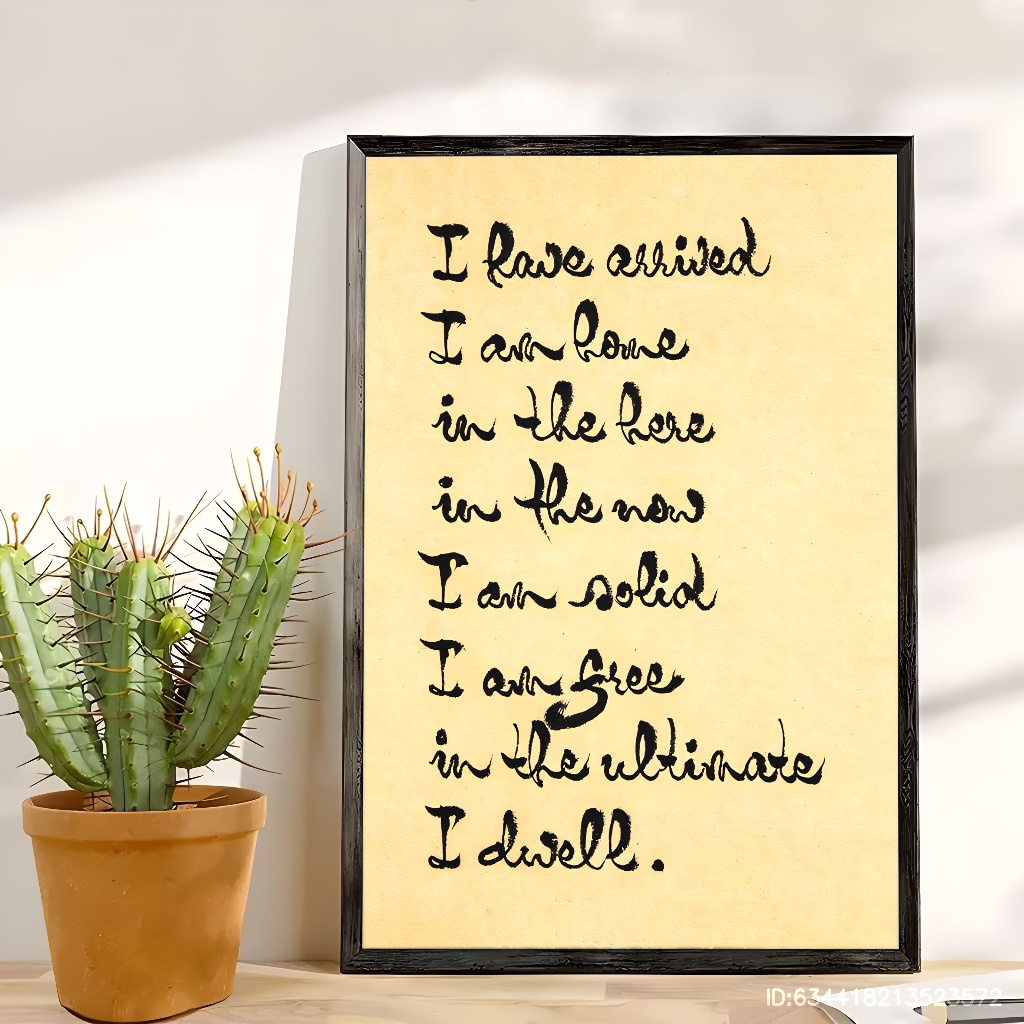 I have arrived
I am home
in the here
in the now
I am solid
I am free
in the ultimate
I dwell.
ID:634418213523572